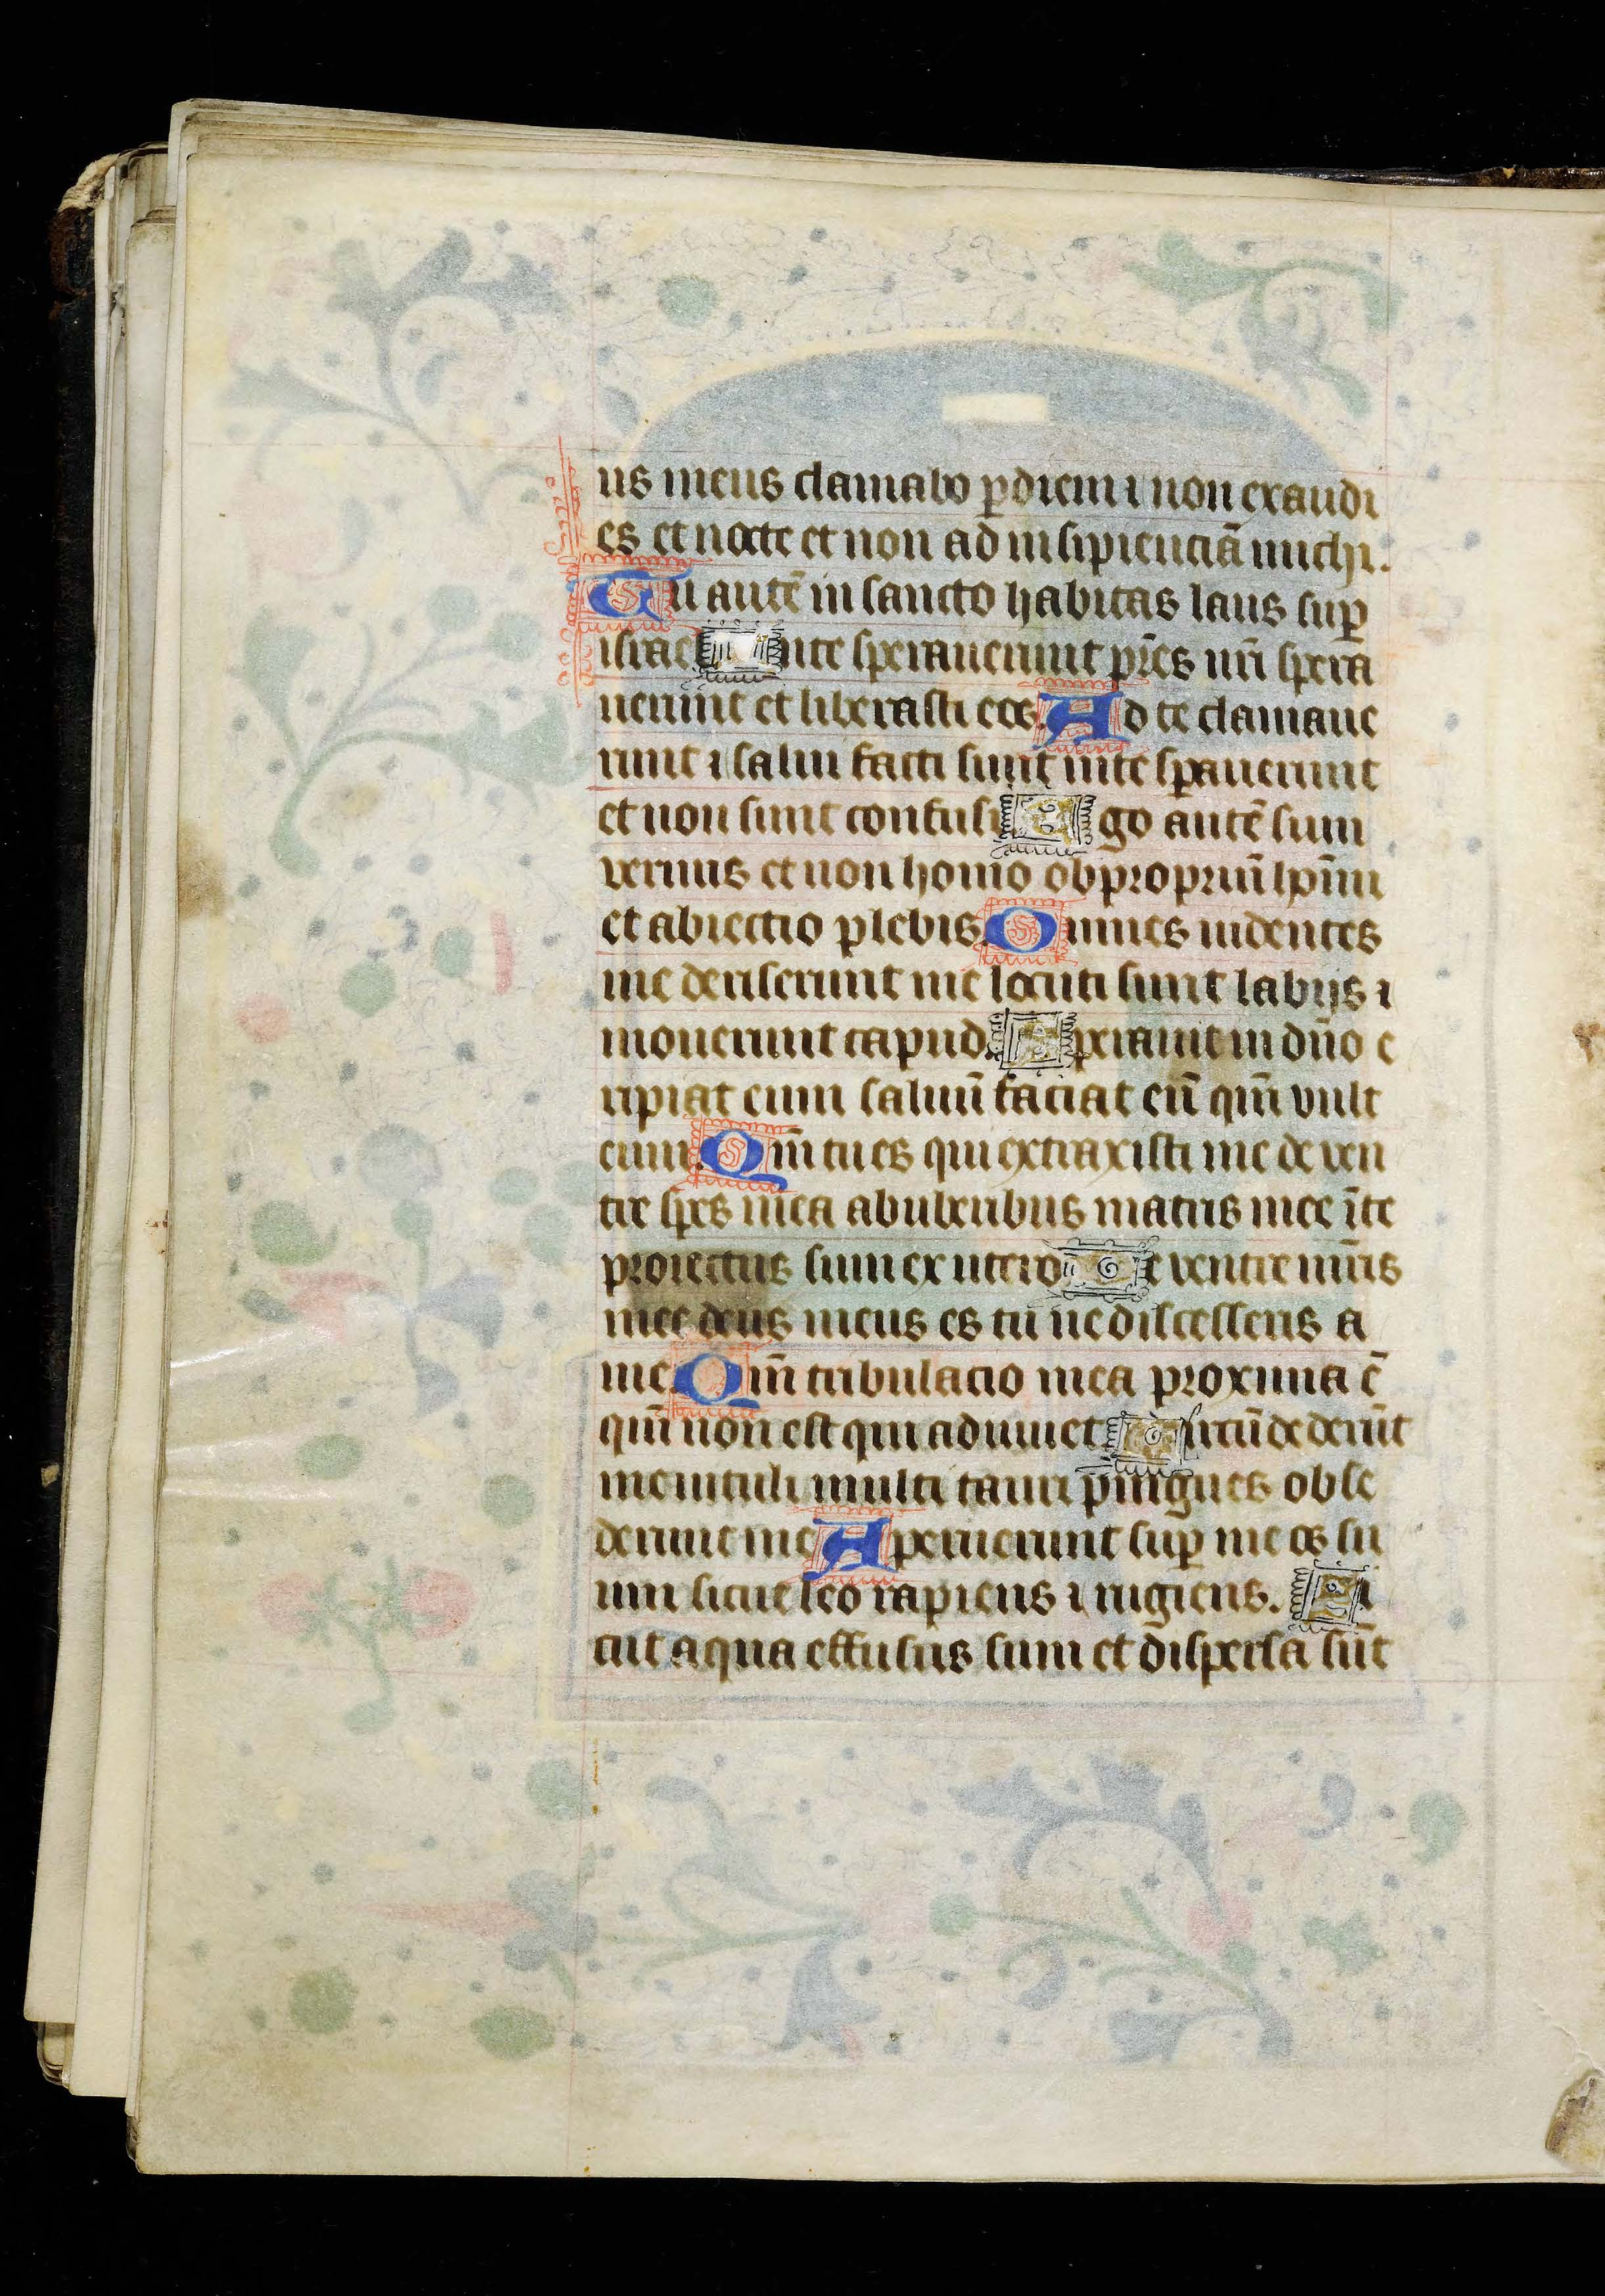 us meus clamabo ꝑ diem ⁊ non exaudi
es et nocte et non ad insipienciā michi.
Tu autē in sancto habitas laus suꝑ
israel In te sperauerunt pr̄es nr̄i spera
uerunt et liberasti eos. Ad te clamaue
runt ⁊ salui facti sunt in te sꝑauerunt
et non sunt confusi Ego autē sum
vermis et non homo obpropriū hoı̄m
et abiectio plebis. Omnes uidentes
me deriserunt me locuti sunt labijs ⁊
mouerunt capud. Sperauit in dn̄o e
ripiat eum saluū faciat eū qm̄ vult
eum. Qm̄ tu es qui extraxisti me de ven
tre spes mea ab uberibus matris mee ī te
proiectus sum ex utero De ventre mr̄is
mee deus meus es tu ne discesseris a
me. Qm̄ tribulacio mea proxima ē
qm̄ non est qui adiuuet Circū dederūt
me uituli multi tauri pingues obse
derunt me Aperuerunt suꝑ me os su
um sicut leo rapiens ⁊ rugiens. Si
cut aqua effusus sum et dispersa sūt